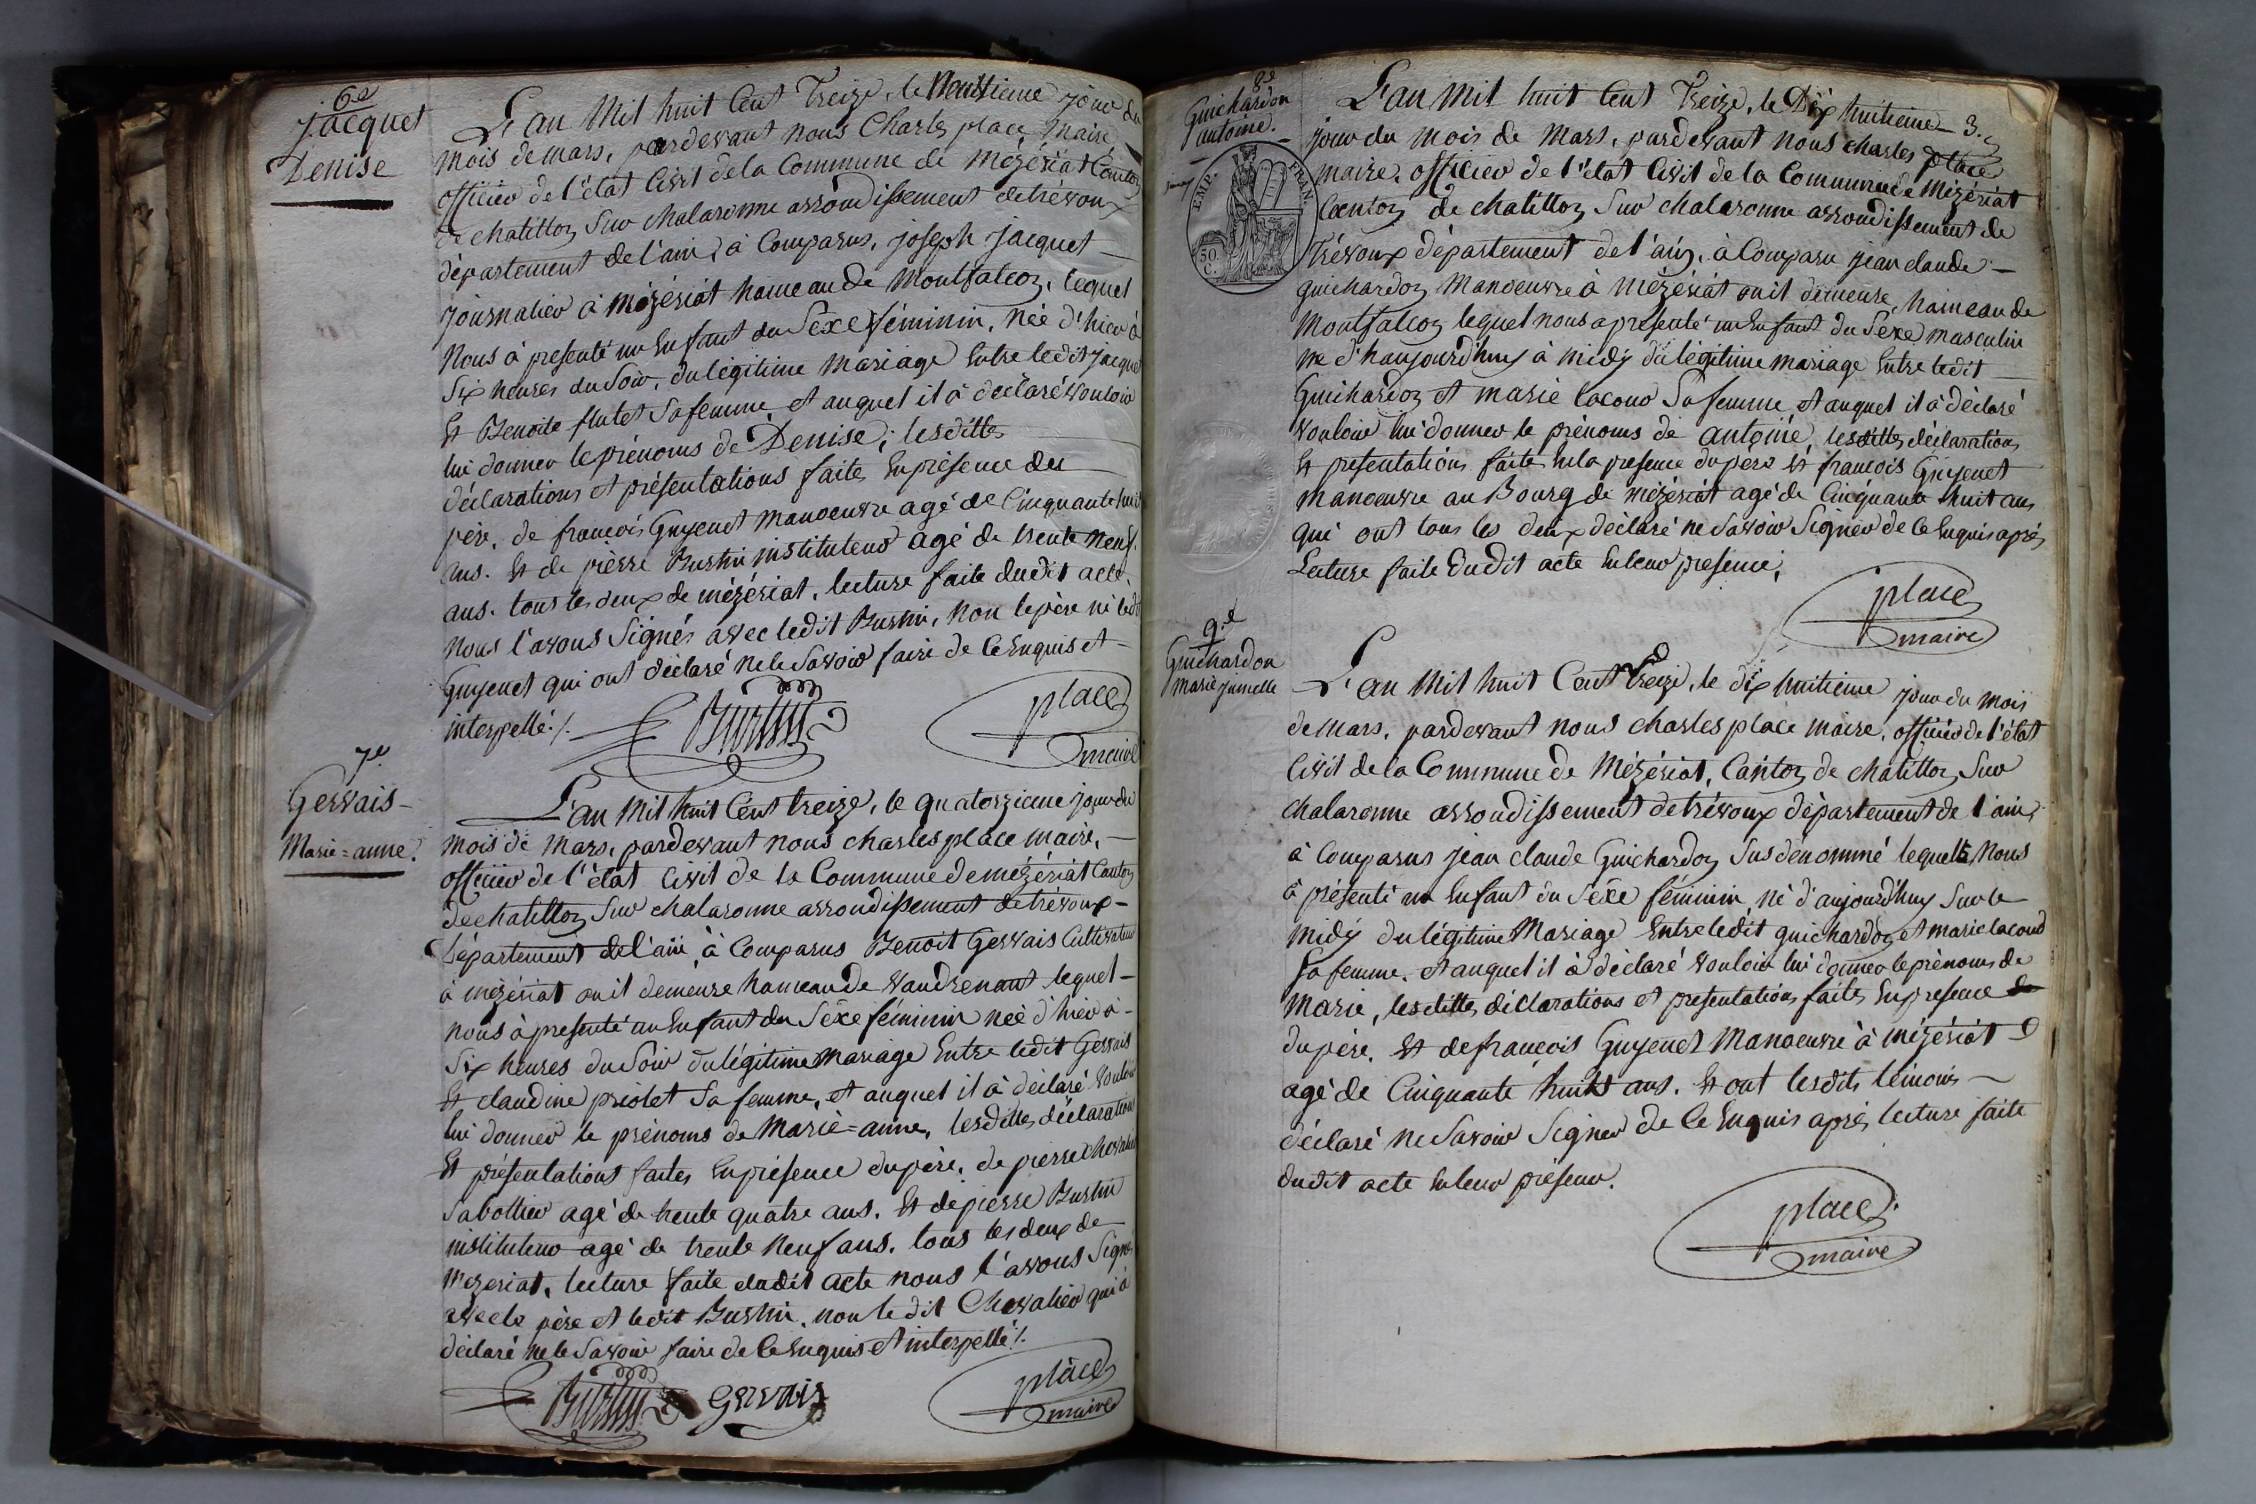 6e
Jacquet
Denise
L'an Mil huit Cent Treize, le Neuvieme jour du
mois de mars, pardevant nous Charles place, maire,
officier de l'état Civil de la Commune de Mézériat Canton
de chatillon sur chalaronne arrondissement de trévoux
département de l'ain, à Comparus, joseph jacquet
journalier à Mézériat hameau de Montfalcon, lequel
Nous à presenté un Enfant du Sexe féminin, née d'hier à
Six heures du Soir, du légitime Mariage Entre ledit jacquet
Et Benoite flutet Sa femme, et auquel il à déclaré vouloir
lui donner le prénoms de Denise; lesdittes
déclarations et présentations faites En présence du
père, de françois Guyenet manoeuvre agé de Cinquante huit
ans. Et de pièrre Burtin instituteur agé de trente neuf
ans. tous les deux de mézériat, lecture faite dudit acte,
nous l'avons Signés avec ledit Burtin, non le père ni ledit
Guyenet qui ont déclaré ne le Savoir faire de Ce Enquis et
interpellé ./.
Burtin
place
maire
7e
Gervais
Marie=anne.
L'an Mil huit Cent treize, le quatorzieme jour du
mois de Mars, pardevant nous charles place maire,
officier de l'état Civil de la Commune de mézériat Canton
de chatillon Sur chalaronne arrondissement de trévoux
Département de l'ain, à Comparus Benoit Gervais Cultivateur
à mézériat ou il demeure hameau de Vaudrenant lequel
nous à presenté un Enfant du Sexe féminin née d'hier à
Six heures du Soir du légitime Mariage Entre ledit Gervais
Et claudine priolet Sa femme, et auquel il à déclaré Vouloir
lui donner le prénoms de Marie=anne, lesdittes déclarations
Et présentations faites En présence du père, de pierre Chevalier
Sabottier agé de trente quatre ans. Et de pierre Burtin
instituteur agé de trente Neuf ans. tous les deux de
Mezeriat, lecture faite dudit acte nous l'avons Signé
avec le père et ledit Burtin, non le dit Chevalier qui à
déclaré ne le Savoir faire de Ce Enquis et interpellé ./.
Burtin
Gervais
place
maire
8e
Guichardon
antoine.
jumeau
EMP. FRAN.
50 C.
3.
L'an Mil huit Cent Treize, le Dix huitieme
jour du mois de Mars, pardevant nous charles place
maire, officier de l'état Civil de la Commune de Mézériat
Canton de chatillon Sur chalaronne arrondissement de
Trévoux département de l'ain, à Comparu jean claude
guichardon Manoeuvre à Mézériat ou il demeure, hameau de
Montfalcon lequel nous a presenté un Enfant du Sexe masculin
né d'haujourd'huy à midy du légitime mariage Entre ledit
Guichardon et marie lacour Sa femme, et auquel il à déclaré
vouloir lui donner le prénoms de antoine, lesdittes déclarations
Et presentations faite En la presence du père Et françois Guyenet
manoeuvre au Bourg de mézériat agé de Cinquante huit ans
qui ont tous les deux déclaré ne Savoir Signer de Ce Enquis après
Lecture faite Dudit acte En leur presence,
place
maire
9e
Guichardon
marie jumelle
L'an Mil huit Cent treize, le dix huitieme jour du mois
de Mars, pardevant nous charles place maire, officier de l'état
Civil de la Commune de Mézériat, Canton de chatillon Sur
chalaronne arrondissement de trévoux département de l'ain,
à Comparus jean claude Guichardon Susdénommé lequel Nous
à présenté un Enfant du Sexe féminin né d'aujourd'huy Sur le
midy du légitime Mariage Entre ledit guichardon et marie lacour
Sa femme, et auquel il à déclaré vouloir lui donner le prénoms de
Marie, lesdittes déclarations et presentations faites En presence
du père, Et de françois Guyenet Manoeuvre à mézériat
agé de Cinquante huit ans. Et ont lesdits témoins
déclaré ne Savoir Signer de Ce Enquis après lecture faite
dudit acte En leur présence.
place.
maire